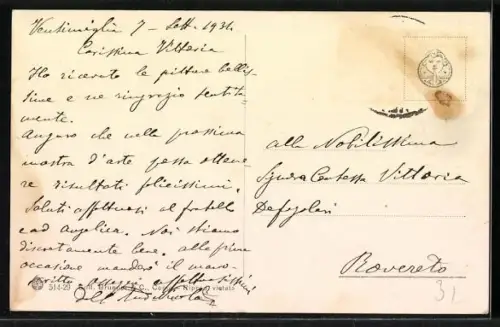 Ventimiglia 7 - Sett. 1931
Carissima Vittoria
Ho ricevuto le pitture bellis-
sime e ne ringrazio sentita-
mente.
Auguro che nella prossima
mostra d'arte possa ottene-
re risultati felicissimi.
Saluti affettuosi al fratello
e ad Angelica. Noi stiamo
discretamente bene. Alla prima
occasione manderò il mano-
scritto.
affettuosissimi
alla Nobilissima
Signora Contessa Vittoria
Rovereto
31
514-29